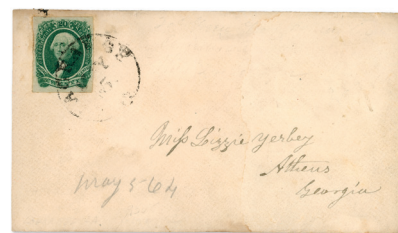 Miss Lizzie Yerbey
Athens
Georgia
May 5 64